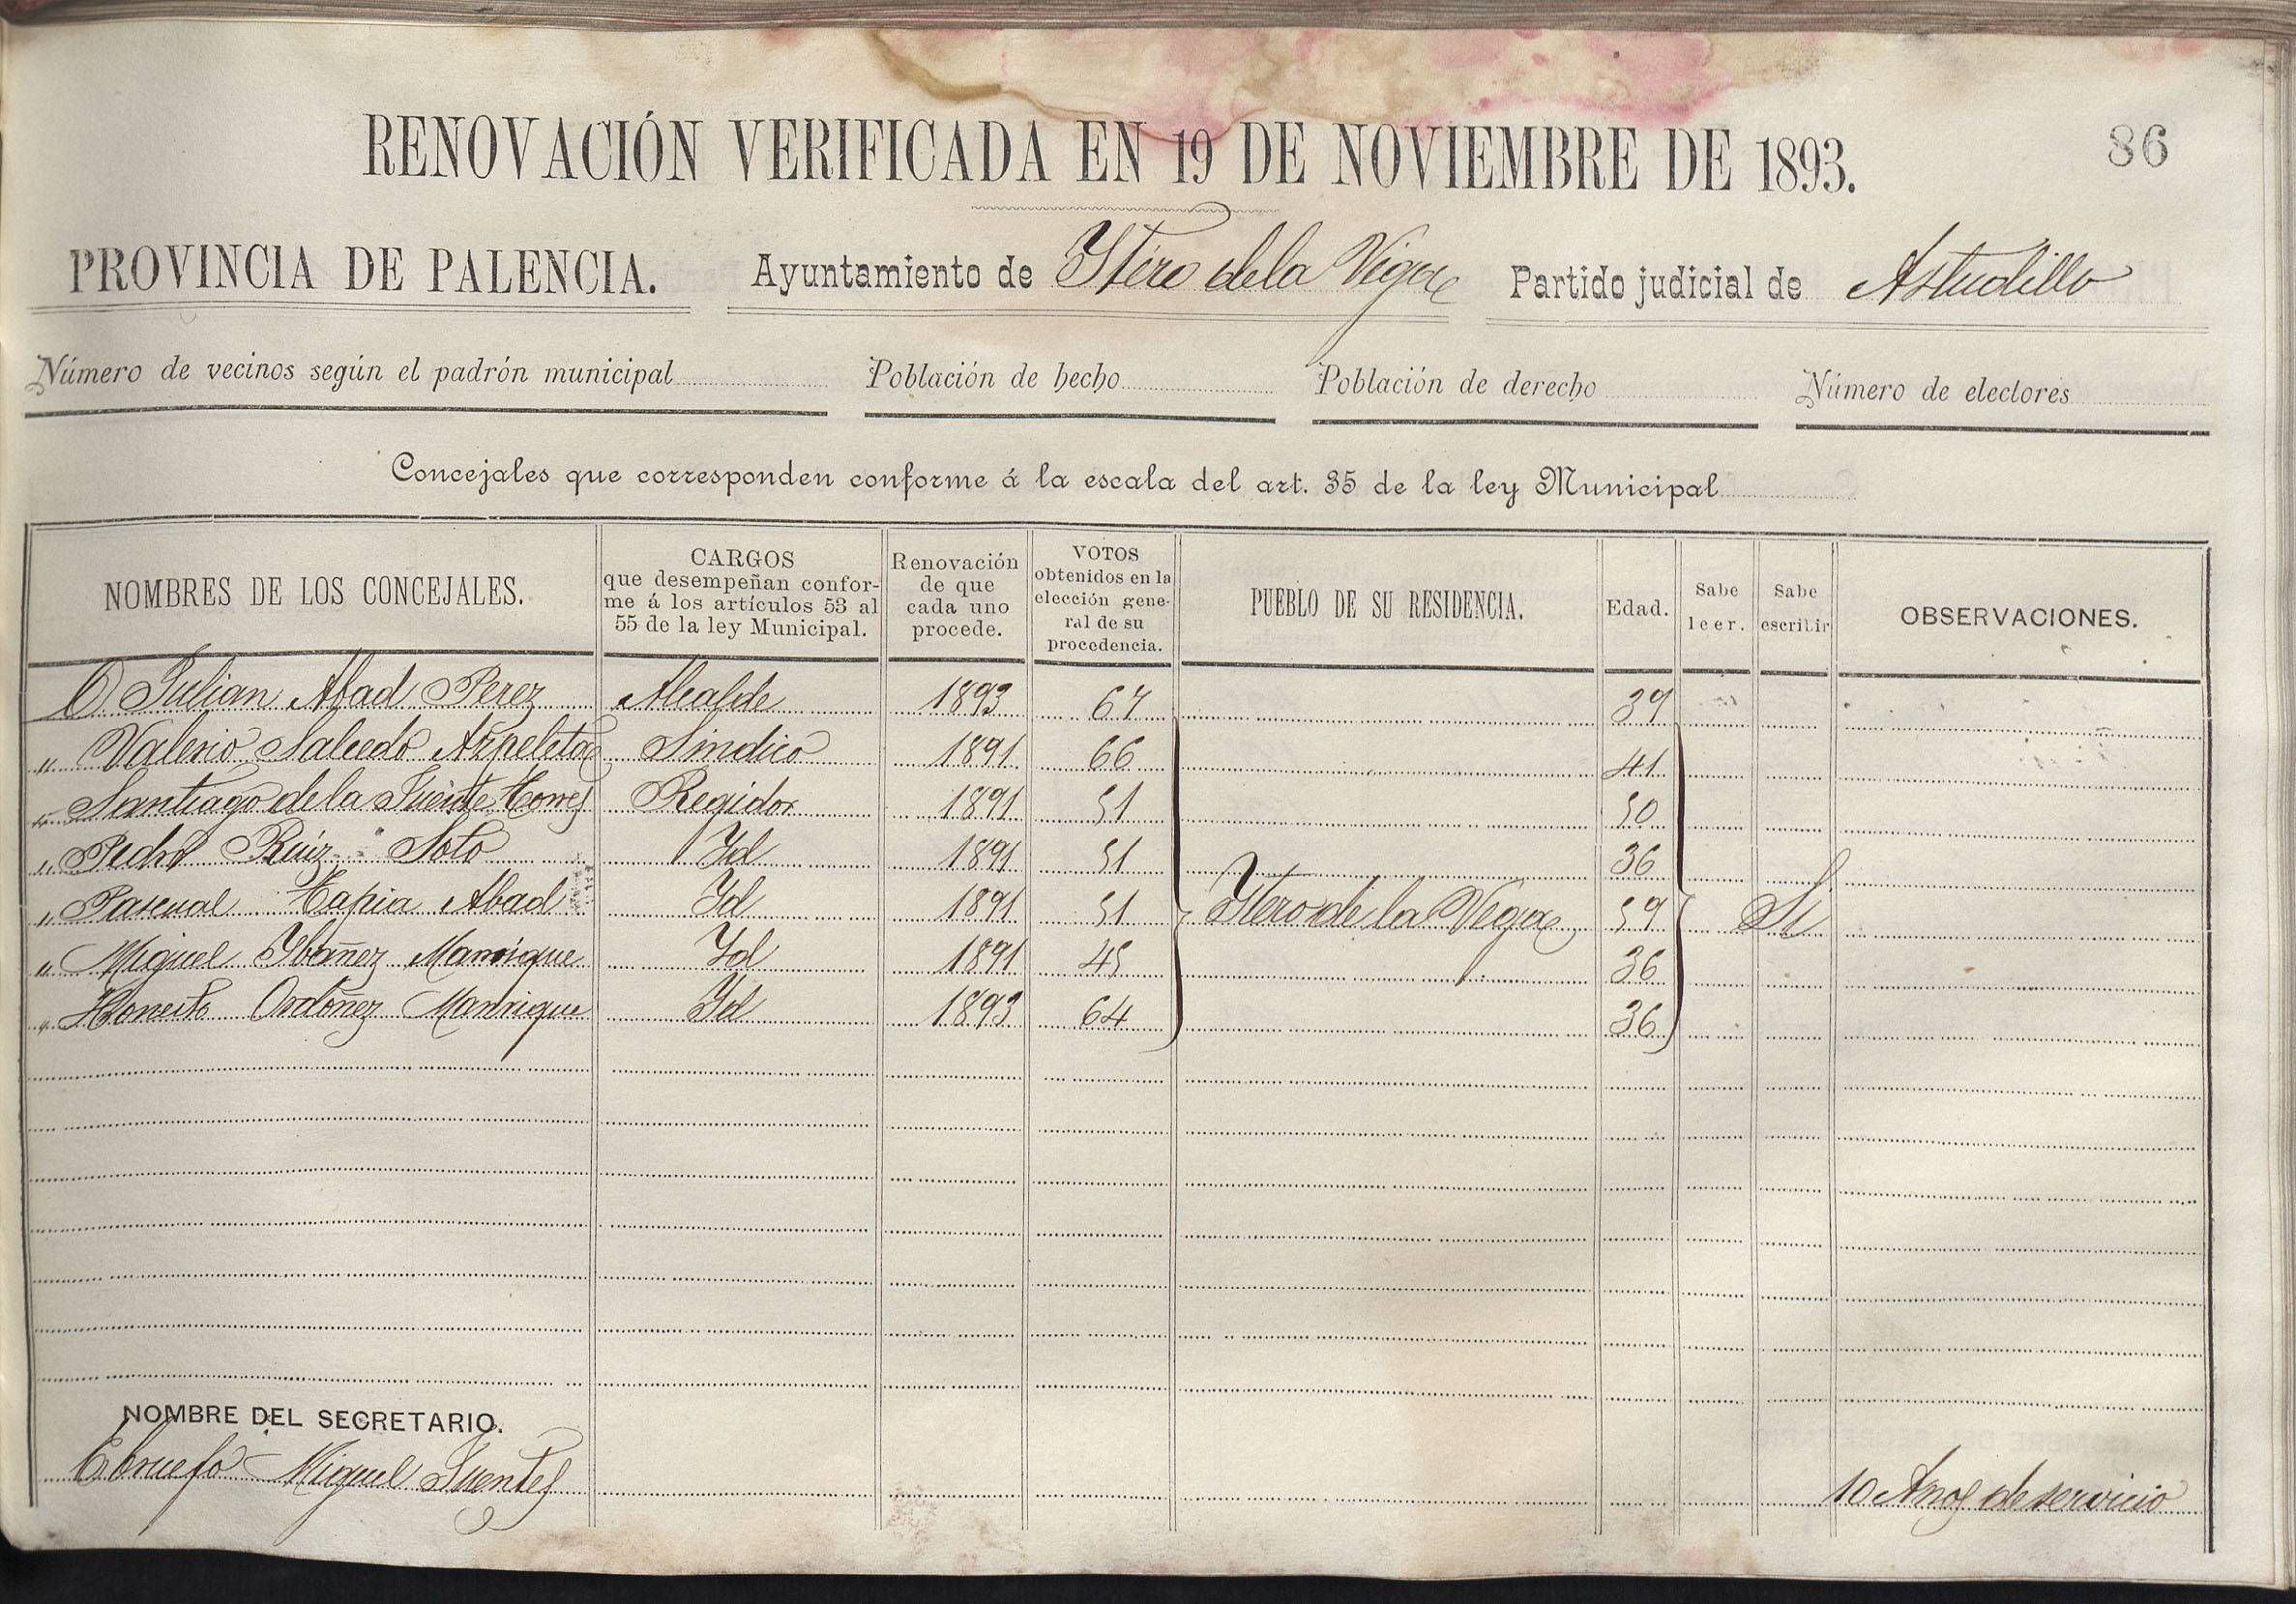 RENOVACIÓN VERIFICADA EN 19 DE NOVIEMBRE DE 1893.
86
PROVINCIA DE PALENCIA. Ayuntamiento de Ytero de la Vega Partido judicial de Astudillo
Número de vecinos según el padrón municipal Población de hecho Población de derecho Número de electores
Concejales que corresponden conforme á la escala del art. 35 de la ley Municipal
NOMBRES DE LOS CONCEJALES. CARGOS que desempeñan confor-me á los artículos 53 al 55 de la ley Municipal. Renovación de que cada uno procede. VOTOS obtenidos en la elección gene-ral de su procedencia. PUEBLO DE SU RESIDENCIA. Edad. Sabe leer. Sabe escribir OBSERVACIONES.
D. Julian Abad Perez Alcalde 1893 67 39
" Valerio Salcedo Azpeleta Sindico 1891 66 41
" Santiago de la Fuente Torres Regidor 1891 51 50
" Pedro Ruiz Soto Yd 1891 51 36
" Pascual Tapia Abad Yd 1891 51 Ytero de la Vega 59 Si
" Miguel Ybañez Manrique Yd 1891 45 36
" Ordoñez Manrique Yd 1893 64 36
NOMBRE DEL SECRETARIO.
Miguel Fuentes 10 Años de servicio